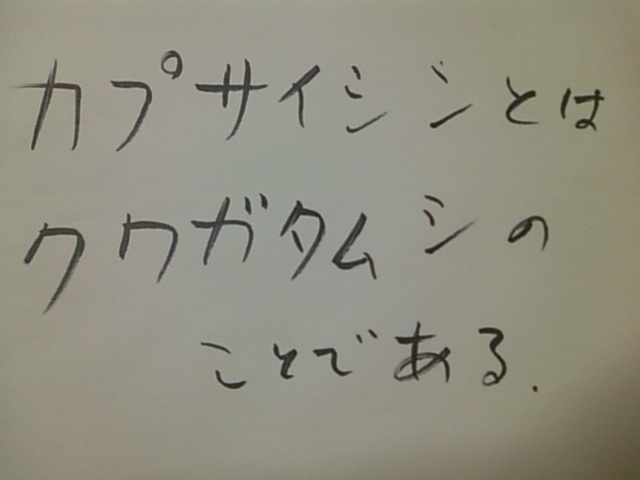 カプサイシンとは
クワガタムシの
ことである.